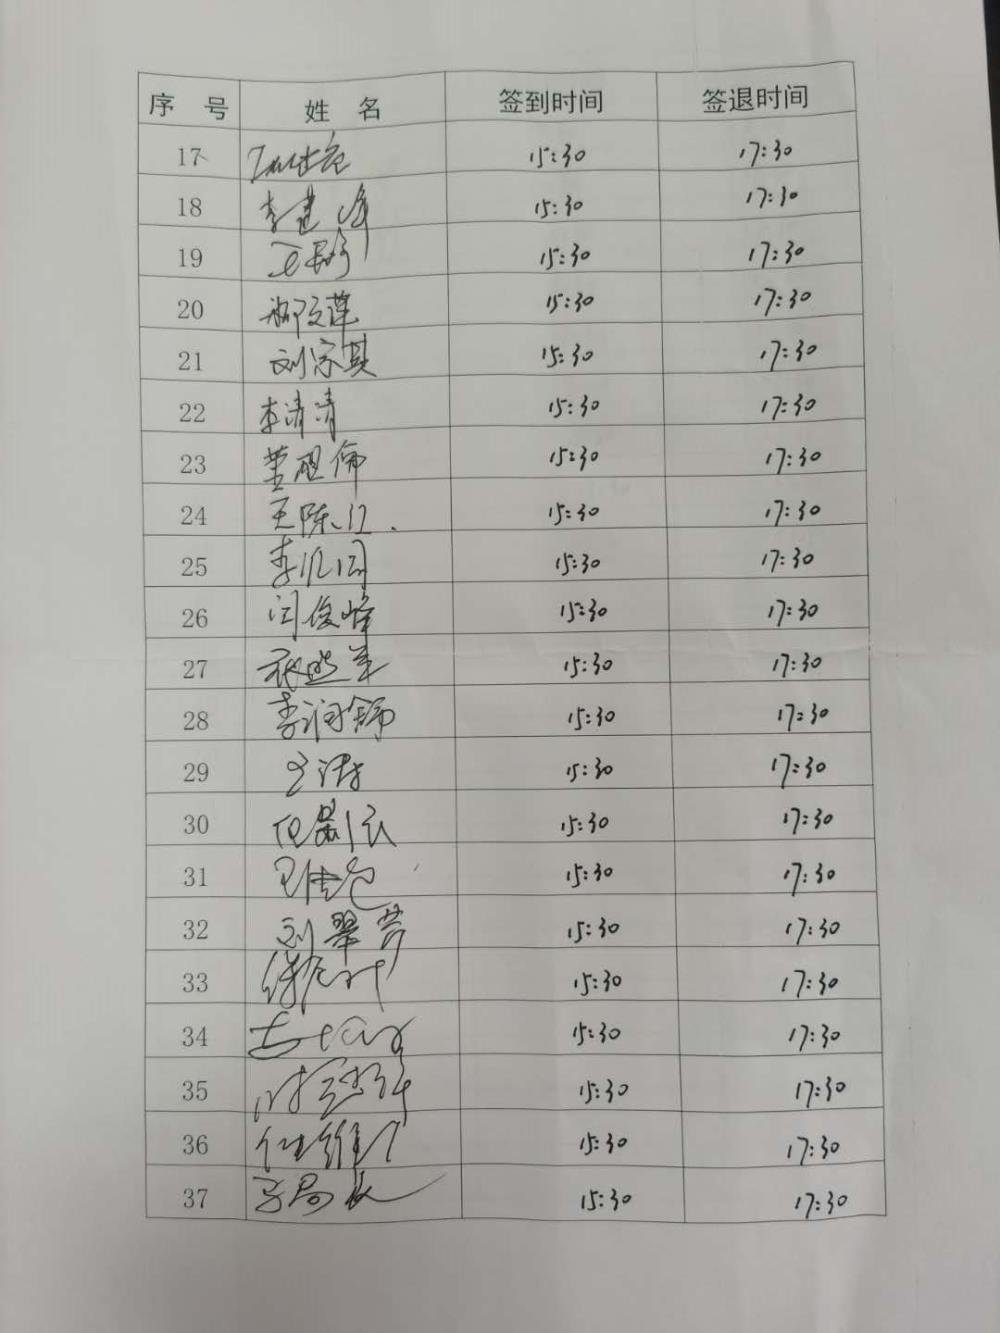 序 号 姓 名 签到时间 签退时间
17 15:30 17:30
18 李建峰 15:30 17:30
19 15:30 17:30
20 15:30 17:30
21 刘家其 15:30 17:30
22 李清清 15:30 17:30
23 15:30 17:30
24 王陈江. 15:30 17:30
25 15:30 17:30
26 闫俊峰 15:30 17:30
27 15:30 17:30
28 李润锦 15:30 17:30
29 15:30 17:30
30 15:30 17:30
31 15:30 17:30
32 刘翠芳 15:30 17:30
33 15:30 17:30
34 15:30 17:30
35 15:30 17:30
36 15:30 17:30
37 15:30 17:30